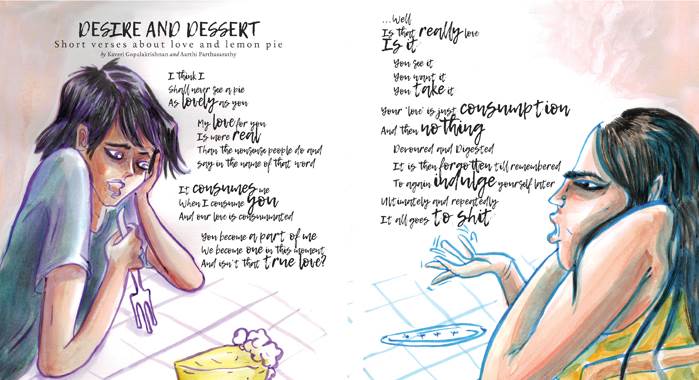 DESIRE AND DESSERT
Short verses about love and lemon pie
by Kaveri Gopalakrishnan and Aarthi Parthasarathy
I think I
Shall never see a pie
As lovely as you
My love for you
Is more real
Than the nonsense people do and
say in the name of that word
It consumes me
When I consume you
And our love is consummated
You become a part of me
We become one in this moment
And isn't that true love?
...Well
Is that really love
Is it
You see it
You want it
You take it
Your 'love' is just consumption
And then nothing
Devoured and Digested
It is then forgotten till remembered
To again indulge yourself later
Ultimately and repeatedly
It all goes to shit